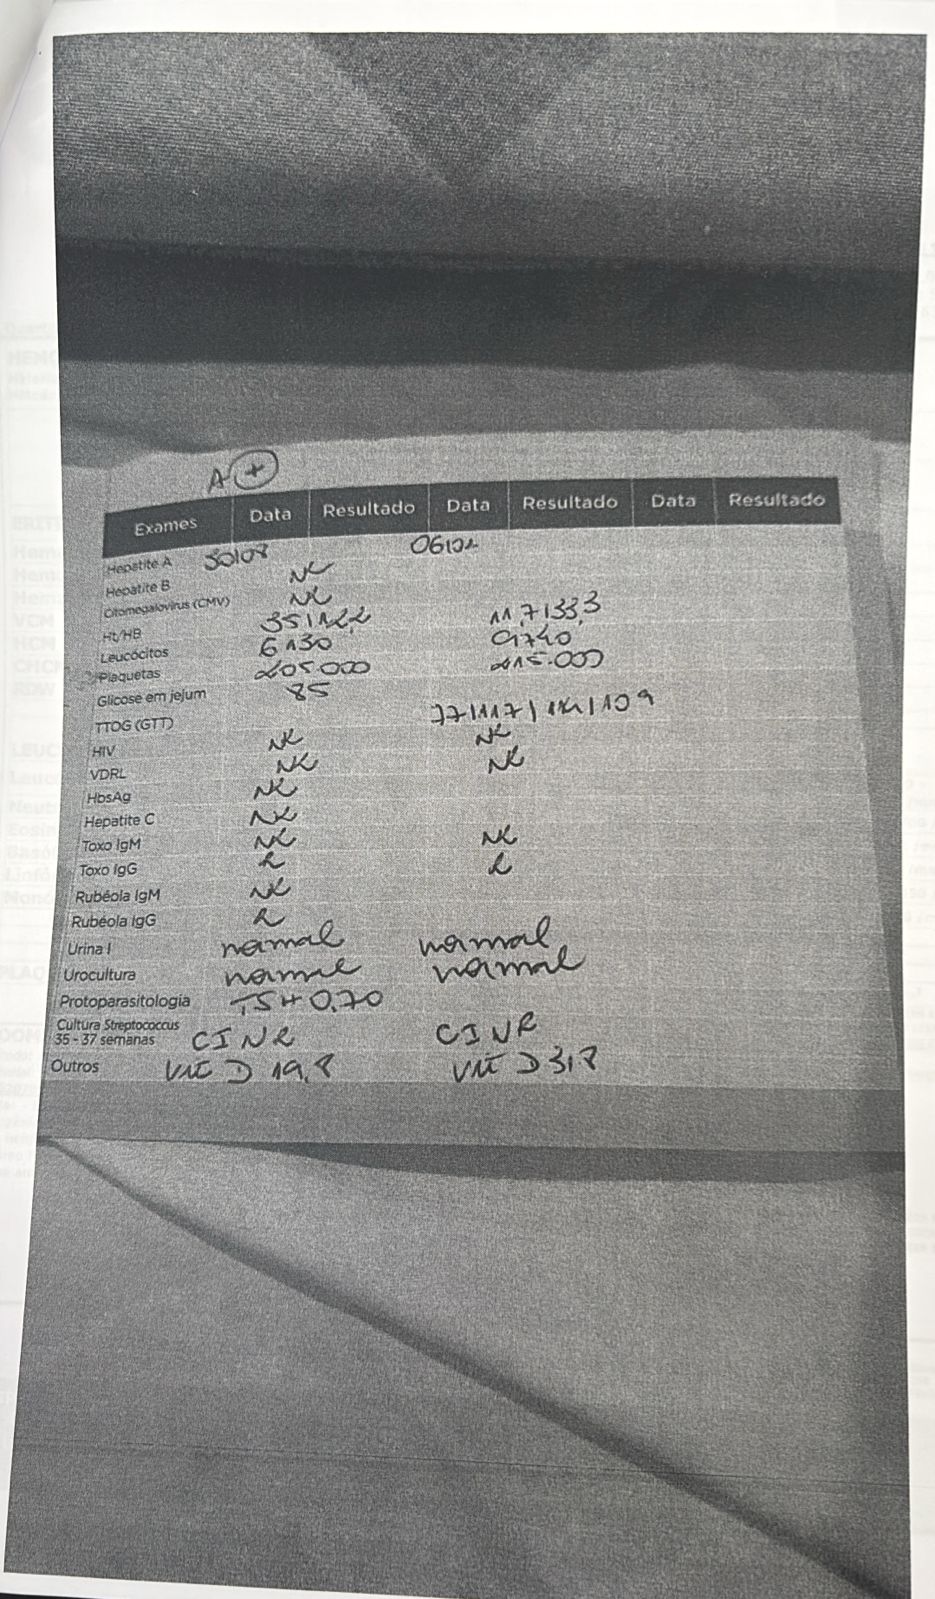 A +
Exames Data Resultado Data Resultado Data Resultado
Hepatite A 30/08 06/02
Hepatite B NR
Citomegalovírus (CMV) NR
Ht/HB 35/12,2 11,7/33,3
Leucócitos 6130 9740
Plaquetas 205.000 215.000
Glicose em jejum 85
TTOG (GTT) 77/117/ /109
HIV NR NR
VDRL NR NR
HbsAg NR
Hepatite C NR
Toxo IgM NR NR
Toxo IgG R R
Rubéola IgM NR
Rubéola IgG R
Urina I normal normal
Urocultura normal normal
Protoparasitologia TSH 0,70
Cultura Streptococcus
35 - 37 semanas CINR CINR
Outros Vit D 19,8 Vit D 31,8